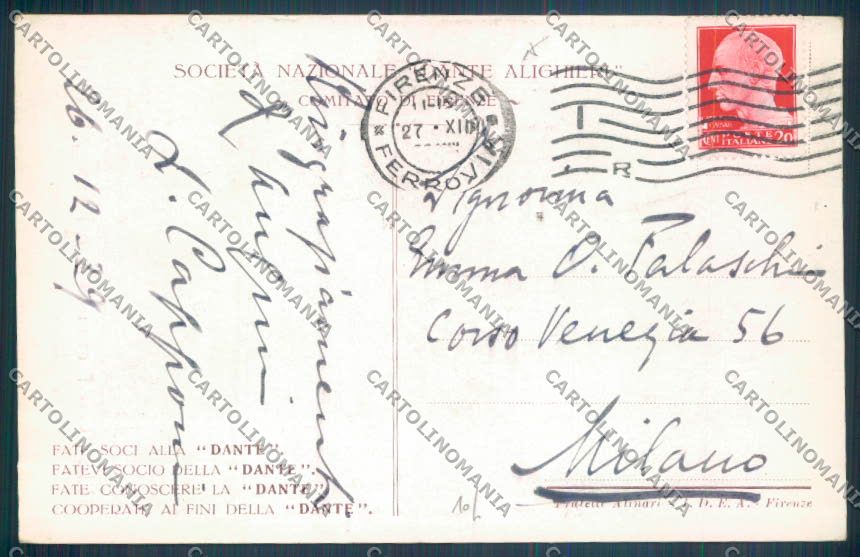 SOCIETÀ NAZIONALE "DANTE ALIGHIERI"
COMITATO DI FIRENZE
FIRENZE
27 • XII
FERROVIA
R
POSTE
ITALIANE
CENT 20
Ringraziamenti
Auguri
Capponi
26.12-29
Signorina
Emma O. Palaschi
Corso Venezia 56
Milano
FATE SOCI ALLA "DANTE".
FATEVI SOCIO DELLA "DANTE".
FATE CONOSCERE LA "DANTE".
COOPERATE AI FINI DELLA "DANTE".
Fratelli Alinari - I. D. E. A. - Firenze
10/
CARTOLINOMANIA